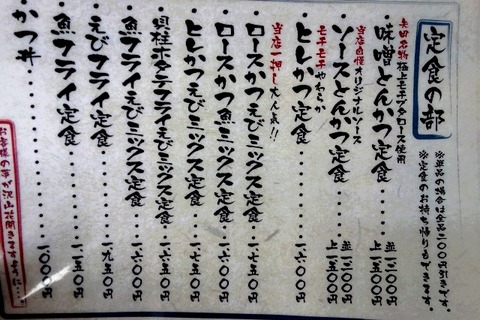 定食の部
※単品の場合は全品二〇〇円引きです。
※定食のお持ち帰りもできます。
矢田名物 極上モチブタロース使用
味噌とんかつ定食
並 一、二〇〇円
上 一、五〇〇円
当店自慢オリジナルソース
ソースとんかつ定食
並 一、二〇〇円
上 一、五〇〇円
モチモチやわらか
ヒレかつ定食・・・一、六〇〇円
当店一押し 大人気!!
ロースかつえびミックス定食・・・一、七五〇円
ロースかつ魚ミックス定食・・・一、六〇〇円
ヒレかつえびミックス定食・・・一、七五〇円
貝柱ホタテフライえびミックス定食
魚フライえびミックス定食・・・一、六〇〇円
えびフライ定食・・・一、九五〇円
魚フライ定食・・・一、一五〇円
かつ丼・・・一、〇〇〇円
お客様の夢が沢山花開きますように…